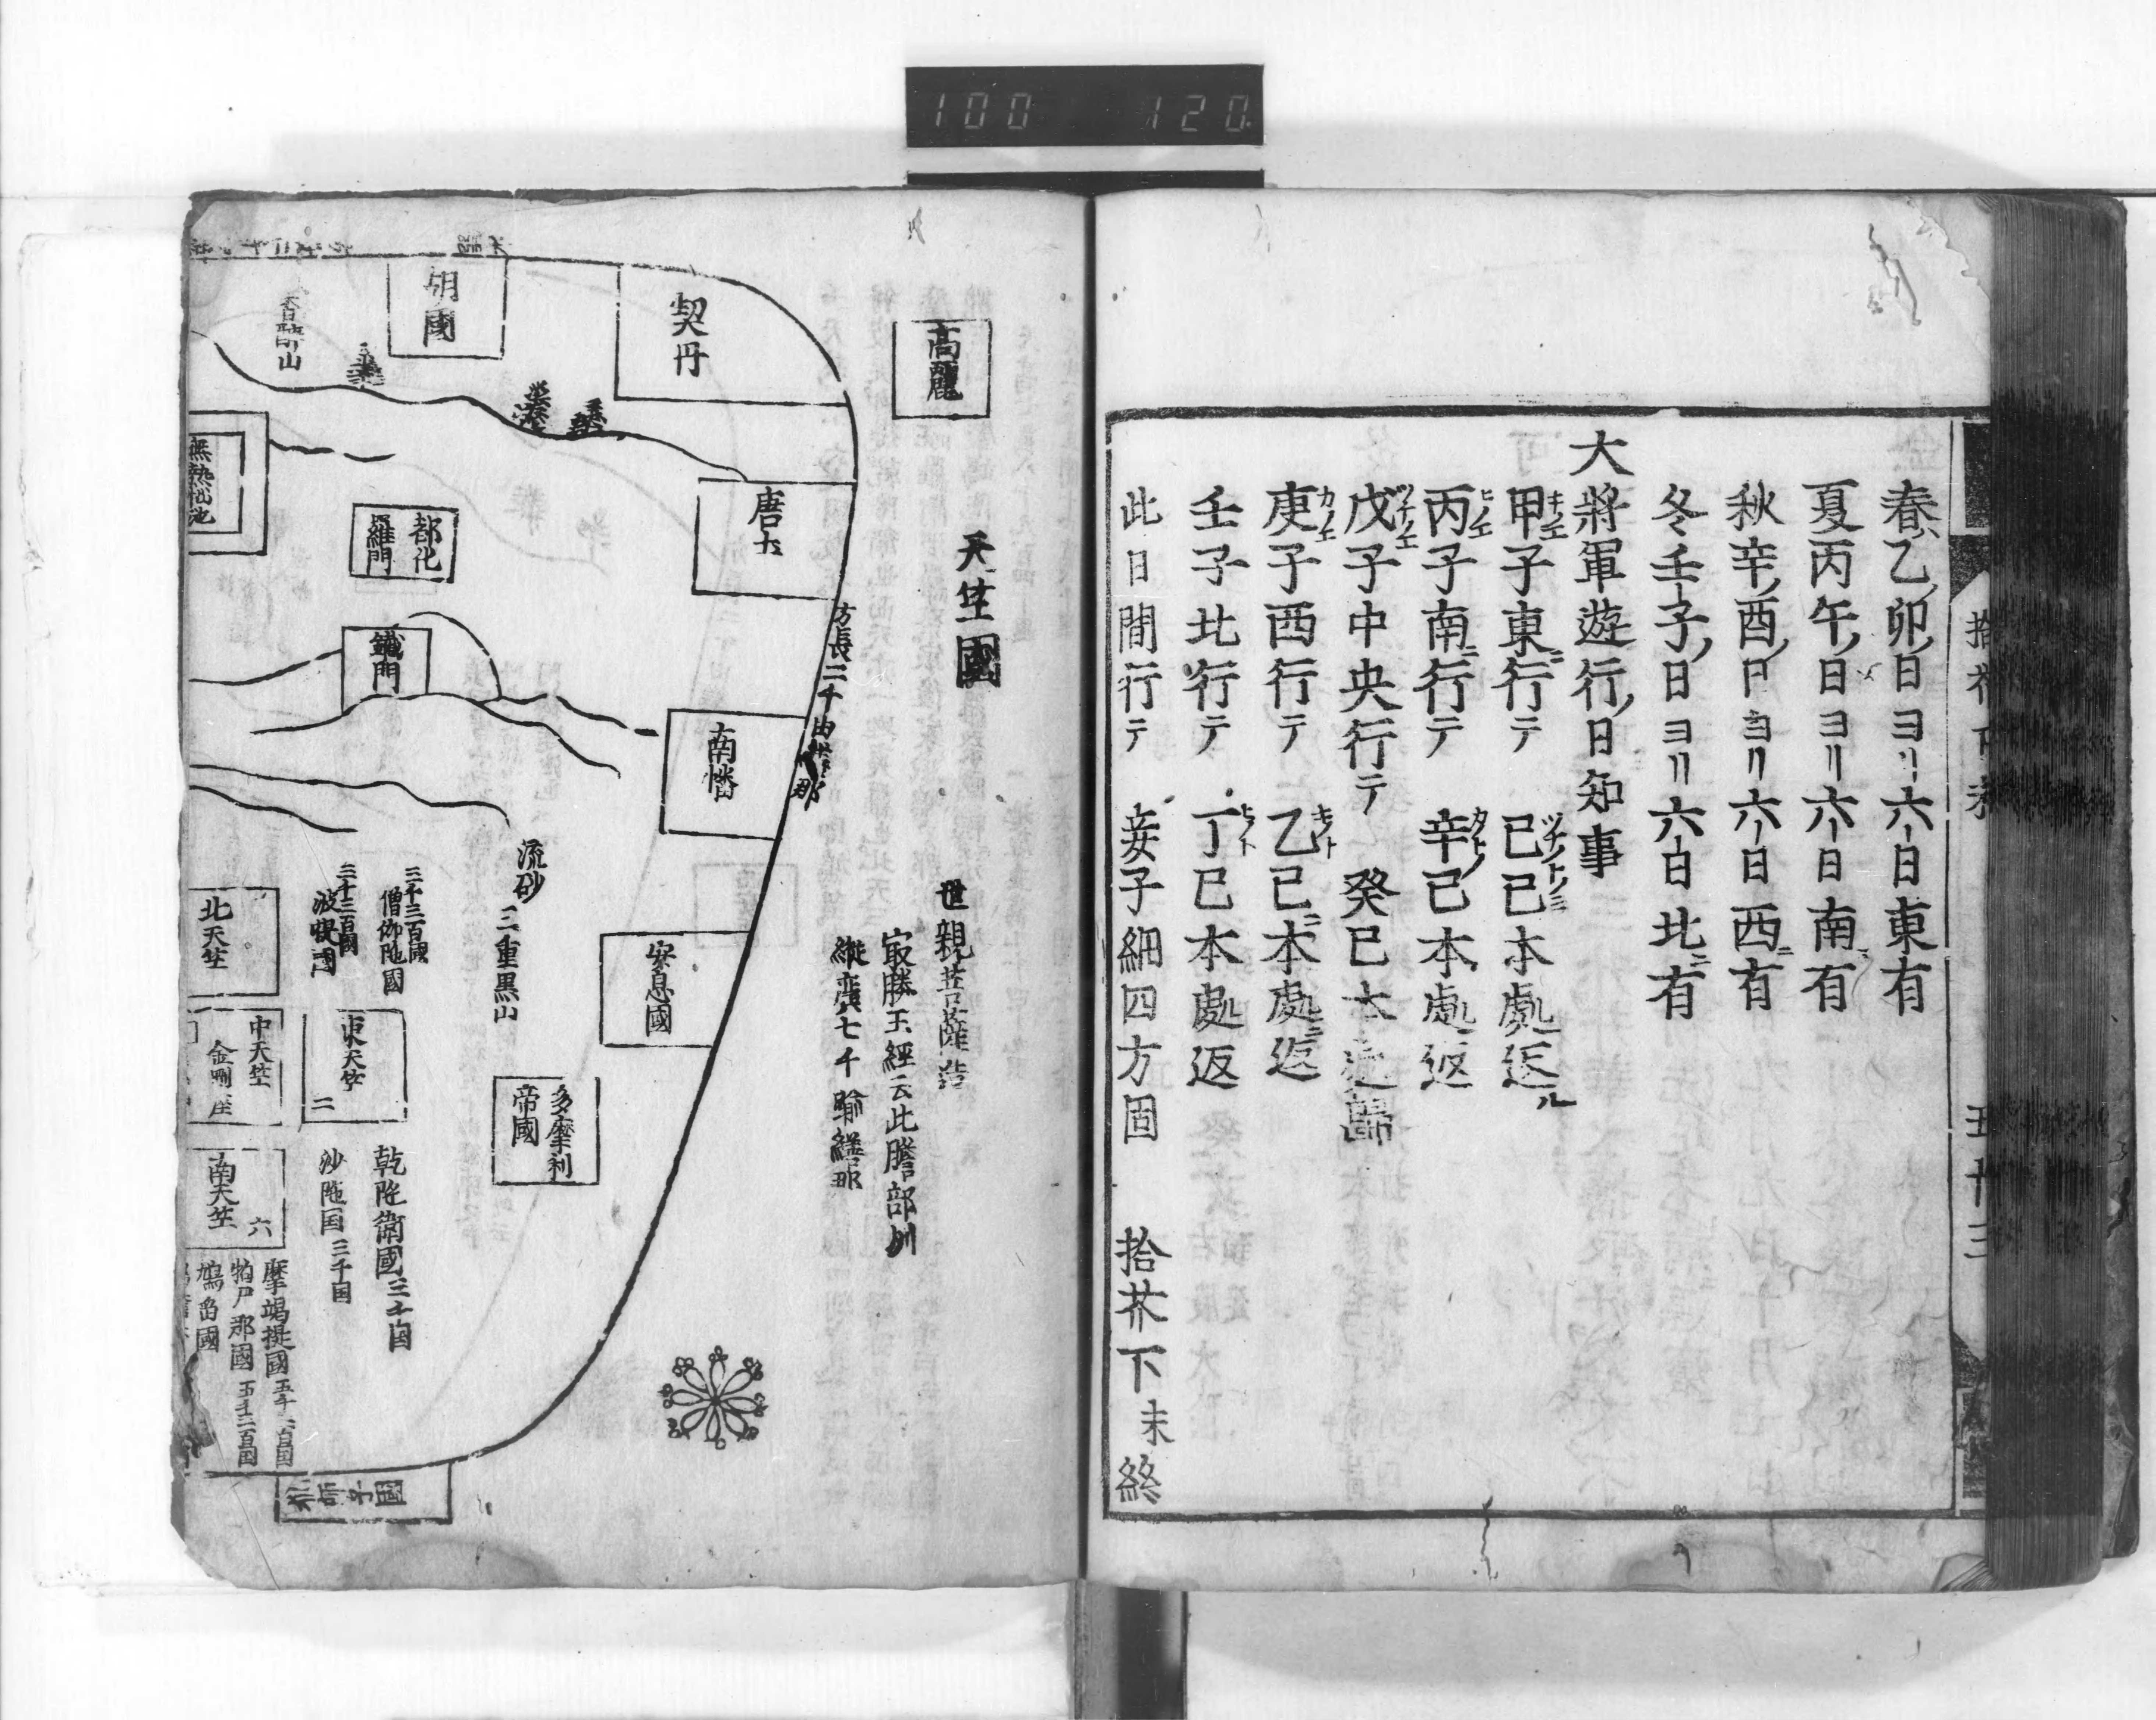 100 120
春ハ乙ノ卯ノ日ヨリ六日東有
夏丙午ノ日ヨリ六日南ニ有
秋辛ノ酉ノ日ヨリ六日西ニ有
冬壬子ノ日ヨリ六日北ニ有
大將軍遊行ノ日知事
甲子東ニ行テ 己巳本處ニ返ル
丙子南ニ行テ 辛巳本處ニ返
戊子中央行テ 癸巳本處歸
庚子西行テ 乙巳ニ本處ニ返
壬子北行テ 丁巳本處返
此日間行テ 妾子細四方固 拾芥下末終
拾芥下末 五十三
天竺國
高麗
契丹
胡國
香酔山
無熱池
唐土
都化
羅門
鐵門
方長二千由繕那
南幡
世親菩薩造
最勝王經云此贍部州
縱廣七千踰繕那
流砂
三重黒山
安息國
多摩利
帝國
三千三百國
僧伽陁國
北天竺
東天竺 二
中天竺
金剛座
南天竺 六
乾陀衛國三千国
沙陁国三千国
摩竭提國
狛尸那國
鳩留國